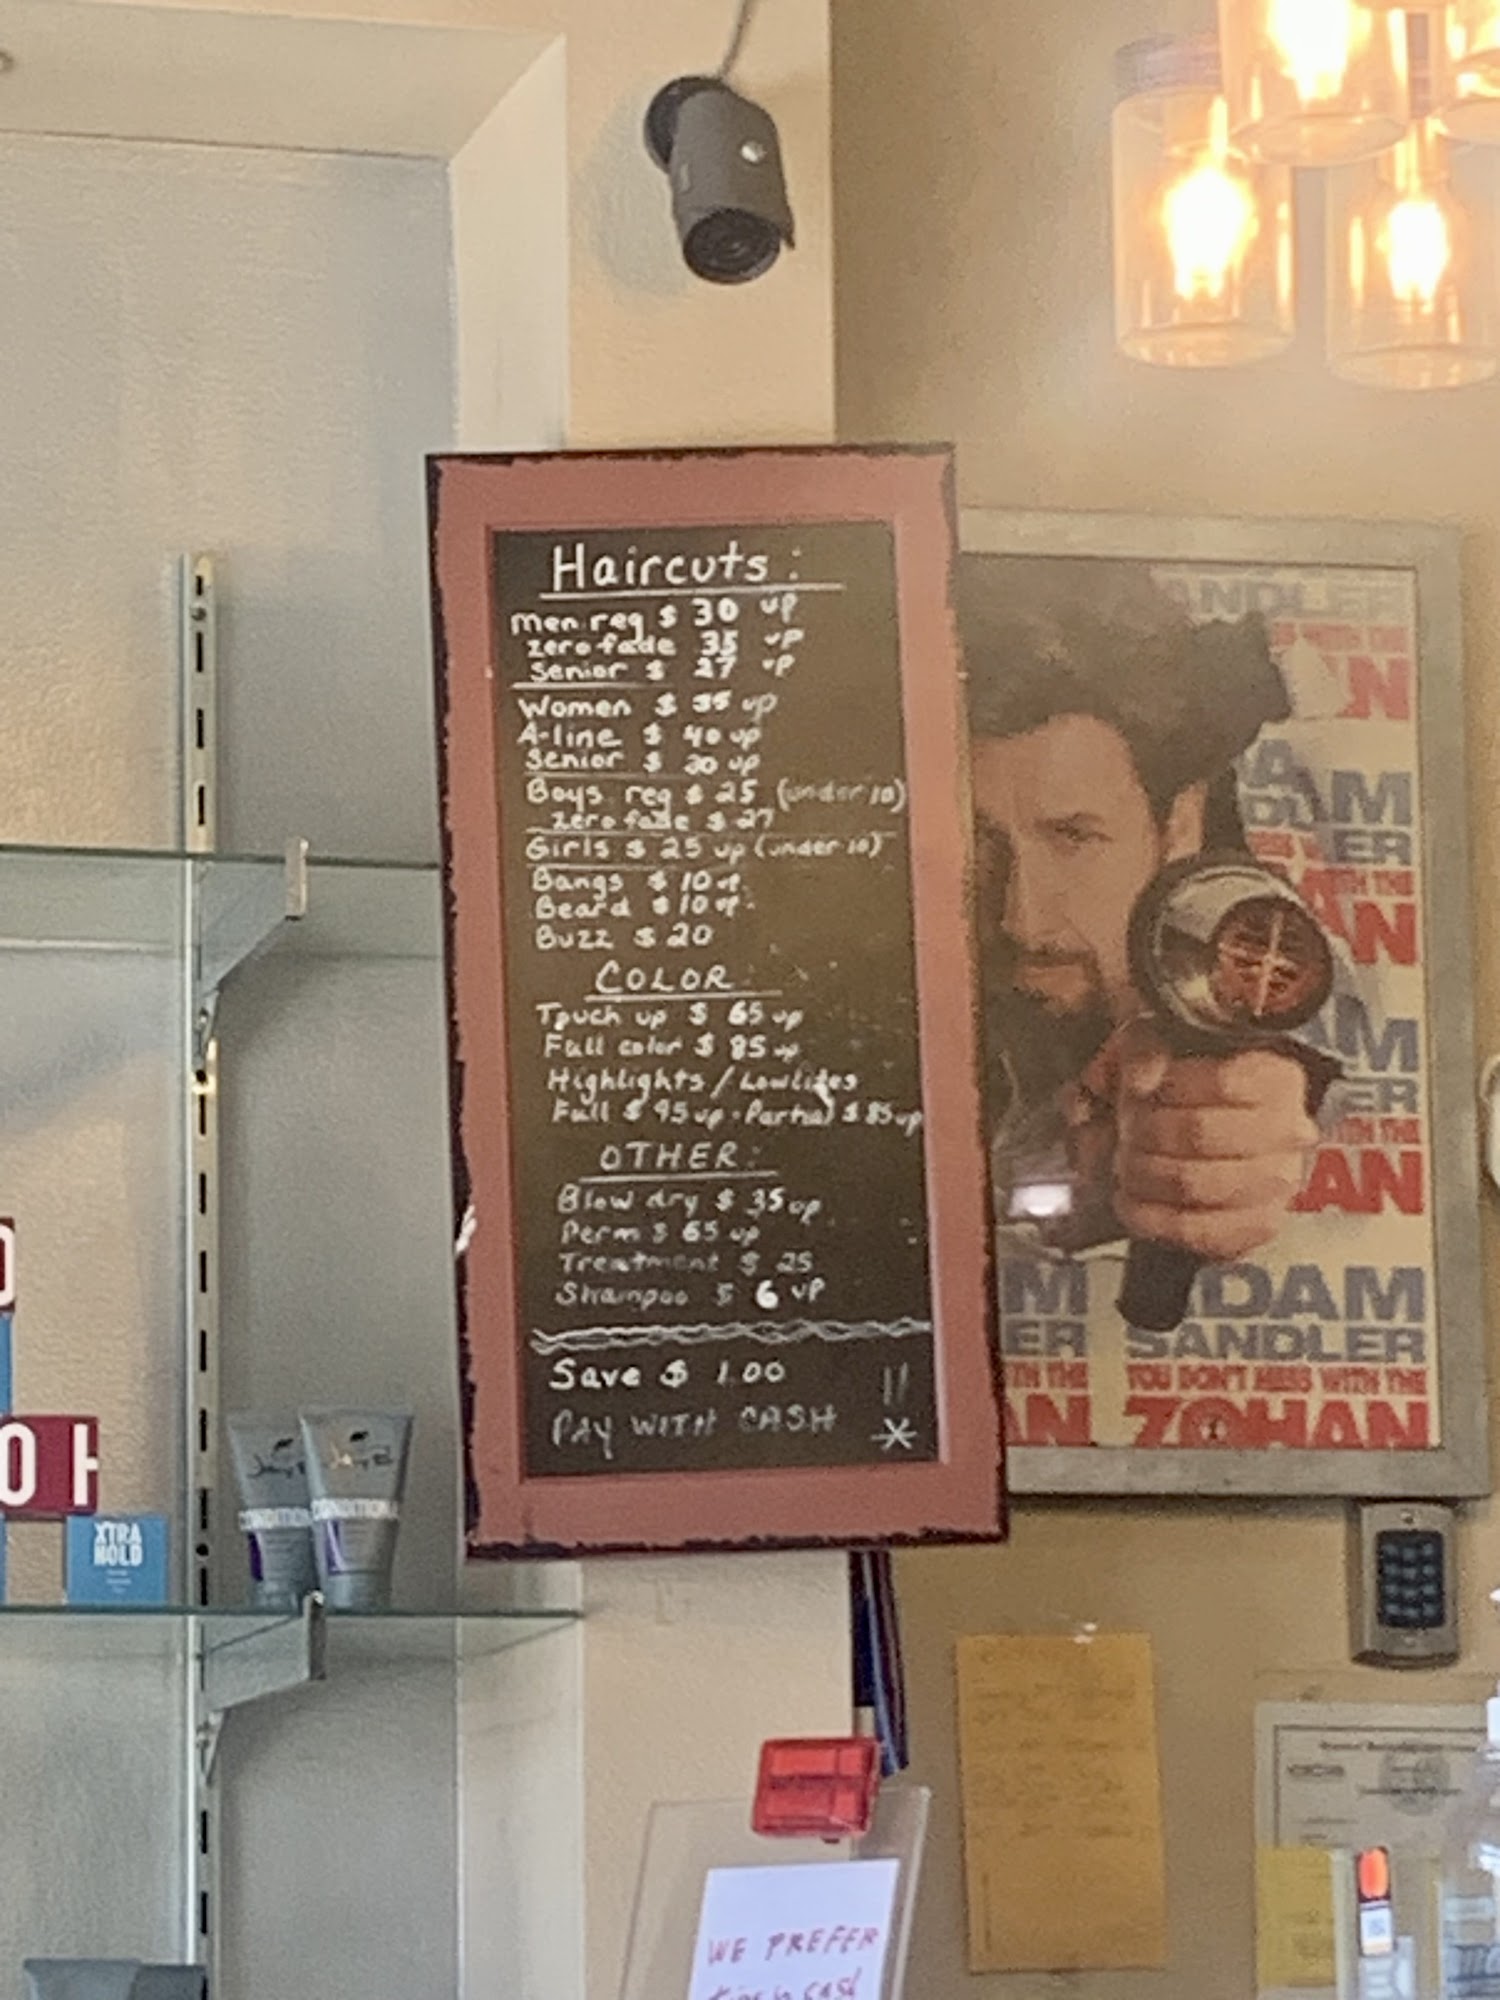 Haircuts:
Men reg $ 30 up
Zero fade 35 up
Senior $ 27 up
Women $ 35 up
A-line $ 40 up
Senior $ 30 up
Boys reg $ 25 (under 10)
Zero fade $ 27
Girls $ 25 up (under 10)
Bangs $ 10 up
Beard $ 10 up
Buzz $ 20
COLOR
Touch up $ 65 up
Full color $ 85 up
Highlights / Lowlites
Full $ 95 up - Partial $ 85 up
OTHER:
Blow dry $ 35 up
Perm $ 65 up
Treatment $ 25
Shampoo $ 6 up
Save $ 1.00
PAY WITH CASH
ANDLER
WITH THE
AN
ADAM
SANDLER
YOU DON'T MESS WITH THE
ZOHAN
O H
XTRA
HOLD
CONDITION
CONDITION
WE PREFER
cash